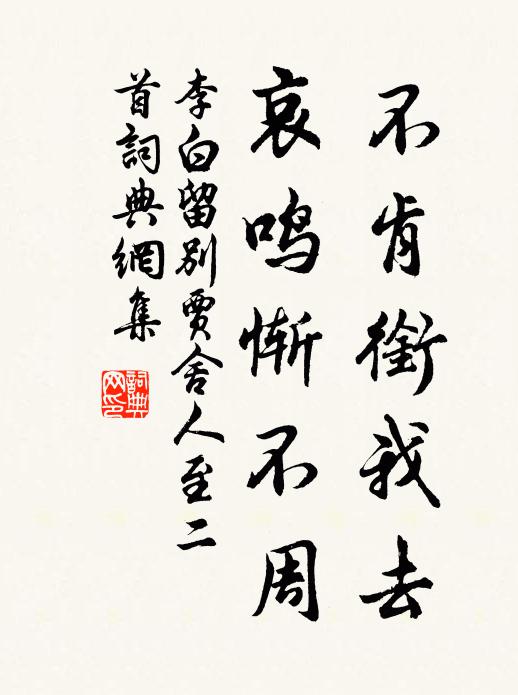 不肯銜我去
哀鸣惭不周
李白留别賈舍人至二
首詞典網集
詞典
网印